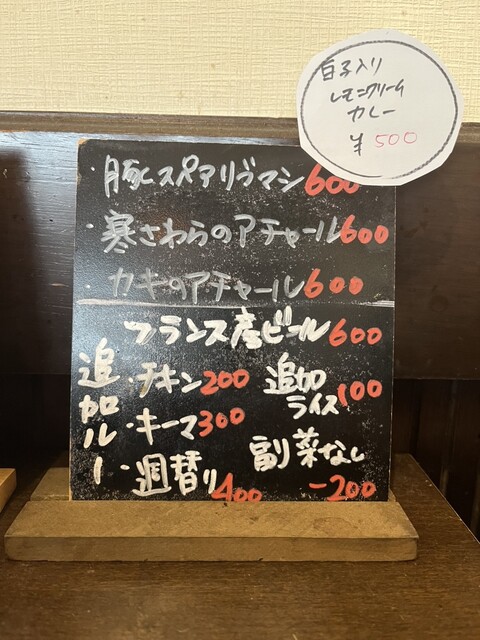 白子入り
レモンクリーム
カレー
¥500
・豚スペアリブマン600
・寒さわらのアチャール600
・カキのアチャール600
フランス産ビール600
追加ルー
・チキン200
・キーマ300
・週替り400
追加
ライス100
副菜なし
-200